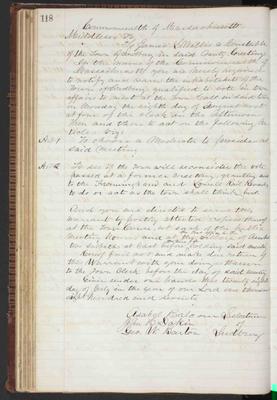 118
Commonwealth of Massachusetts
Middlesex SS.
To James
of the Town of Sudbury in said County Greeting.
In the name of the Commonwealth of
Massachusetts you are hereby required
to notify and warn the inhabitants of the
Town of Sudbury qualified to vote in town
affairs to meet at the Town
on Monday the eighth day of August next
at four of the clock in the afternoon
then and there to act on the following
Articles Viz.
Art 1 To choose a Moderator to preside at
said Meeting.
Art 2 To see if the town will reconsider the vote
passed at a former meeting, granting aid
to the Framingham and Lowell Rail Road,
to do or act as the town shall think
And you are directed to serve this
warrant by posting attested copies thereof
at the Town House, at each of the public
Meeting houses and at
two
Hereof fail not and make due return of
this Warrant with your doings thereon
to the Town Clerk before the day of said meeting
Given under our hands this twenty
day of July in the year of our Lord one thousand
eight hundred and seventy
Selectmen
of
Sudbury